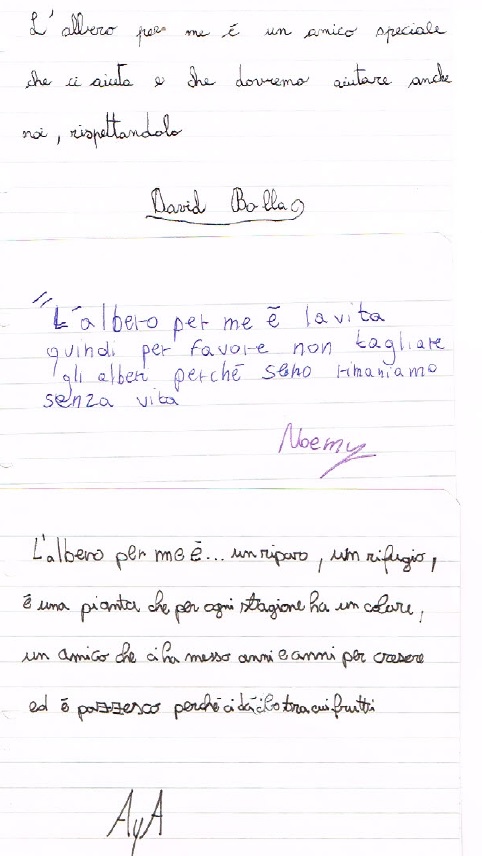 L'albero per me è un amico speciale
che ci aiuta e che dovremo aiutare anche
noi, rispettandolo
David Bolla
"L'albero per me è la vita
quindi per favore non tagliare
gli alberi perché seno rimaniamo
senza vita
Noemy
L'albero per me è... un riparo, un rifugio,
è una pianta che per ogni stagione ha un colore,
un amico che ci ha messo anni e anni per cresere
ed è pazzesco perché ci dà cibo tra cui frutti
AyA